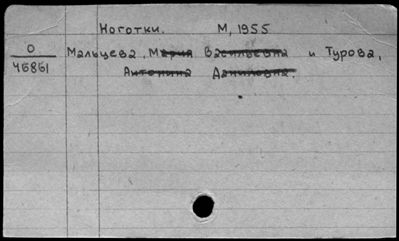 Ноготки. М, 1955
О Мальцева, Мария Васильевна и Турова,
46861 Антонина Даниловна.